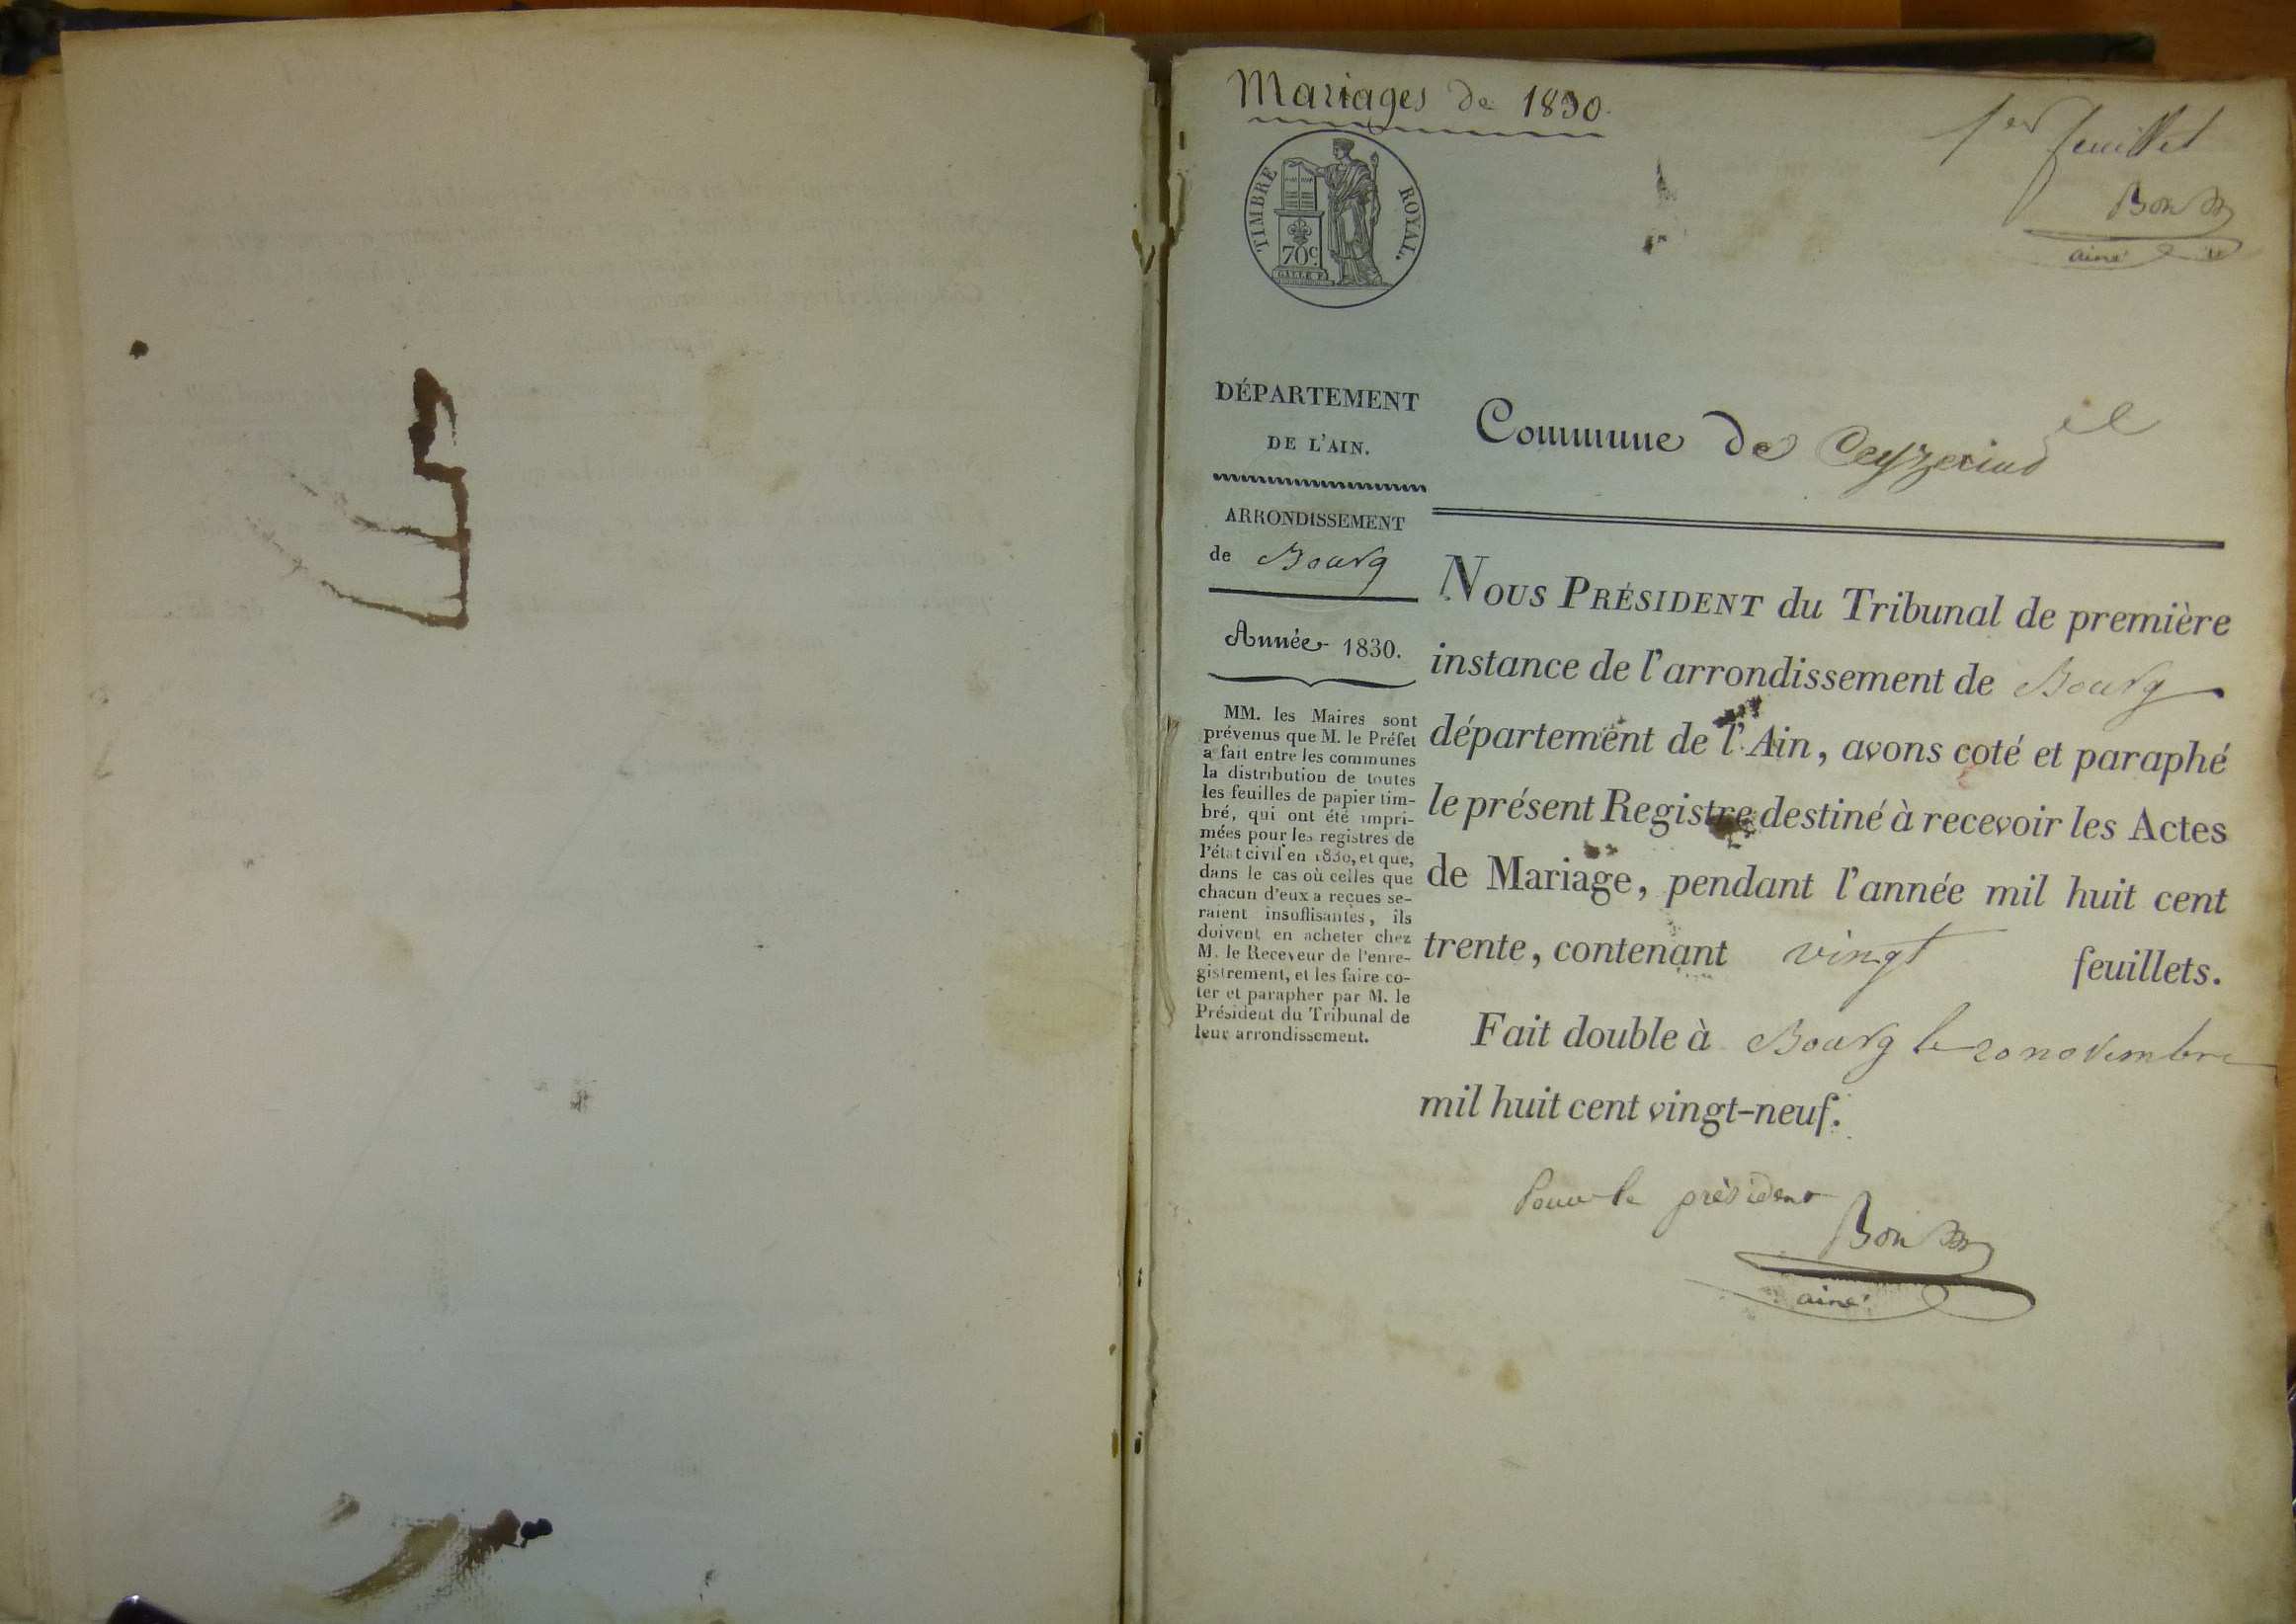 Mariages de 1830.
1er feuillet
Bon
ainé
TIMBRE ROYAL.
70c
GALLE F.
DÉPARTEMENT
DE L'AIN.
Commune de Ceyzeriat
ARRONDISSEMENT
de Bourg
Année 1830.
MM. les Maires sont
prévenus que M. le Préfet
a fait entre les communes
la distribution de toutes
les feuilles de papier tim-
bré, qui ont été impri-
mées pour les registres de
l'état civil en 1830, et que,
dans le cas où celles que
chacun d'eux a reçues se-
raient insuffisantes, ils
doivent en acheter chez
M. le Receveur de l'enre-
gistrement, et les faire co-
ter et parapher par M. le
Président du Tribunal de
leur arrondissement.
NOUS PRÉSIDENT du Tribunal de première
instance de l'arrondissement de Bourg
département de l'Ain, avons coté et paraphé
le présent Registre destiné à recevoir les Actes
de Mariage, pendant l'année mil huit cent
trente, contenant vingt feuillets.
Fait double à Bourg le 20 novembre
mil huit cent vingt-neuf.
Pour le président
Bon
ainé